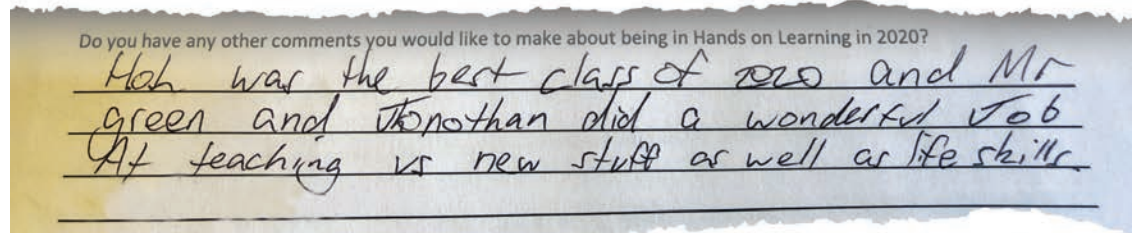 Do you have any other comments you would like to make about being in Hands on Learning in 2020?
Hoh was the best class of 2020 and Mr
green and Jonothan did a wonderful Job
At teaching us new stuff as well as life skills